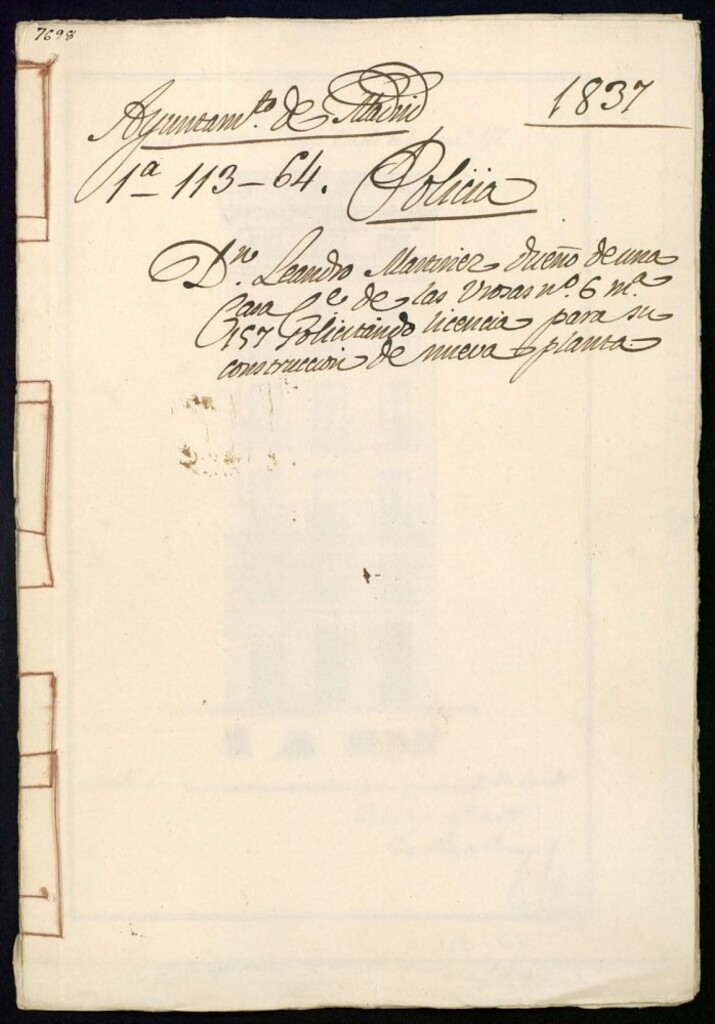 7698
Ayuntam.to de Madrid 1837
1ª 113-64. Policia
Dn. Leandro Martinez dueño de una
Casa Ce de las Urosas nº. 6 mª.
157 Solicitando licencia para su
construccion de nueva planta.